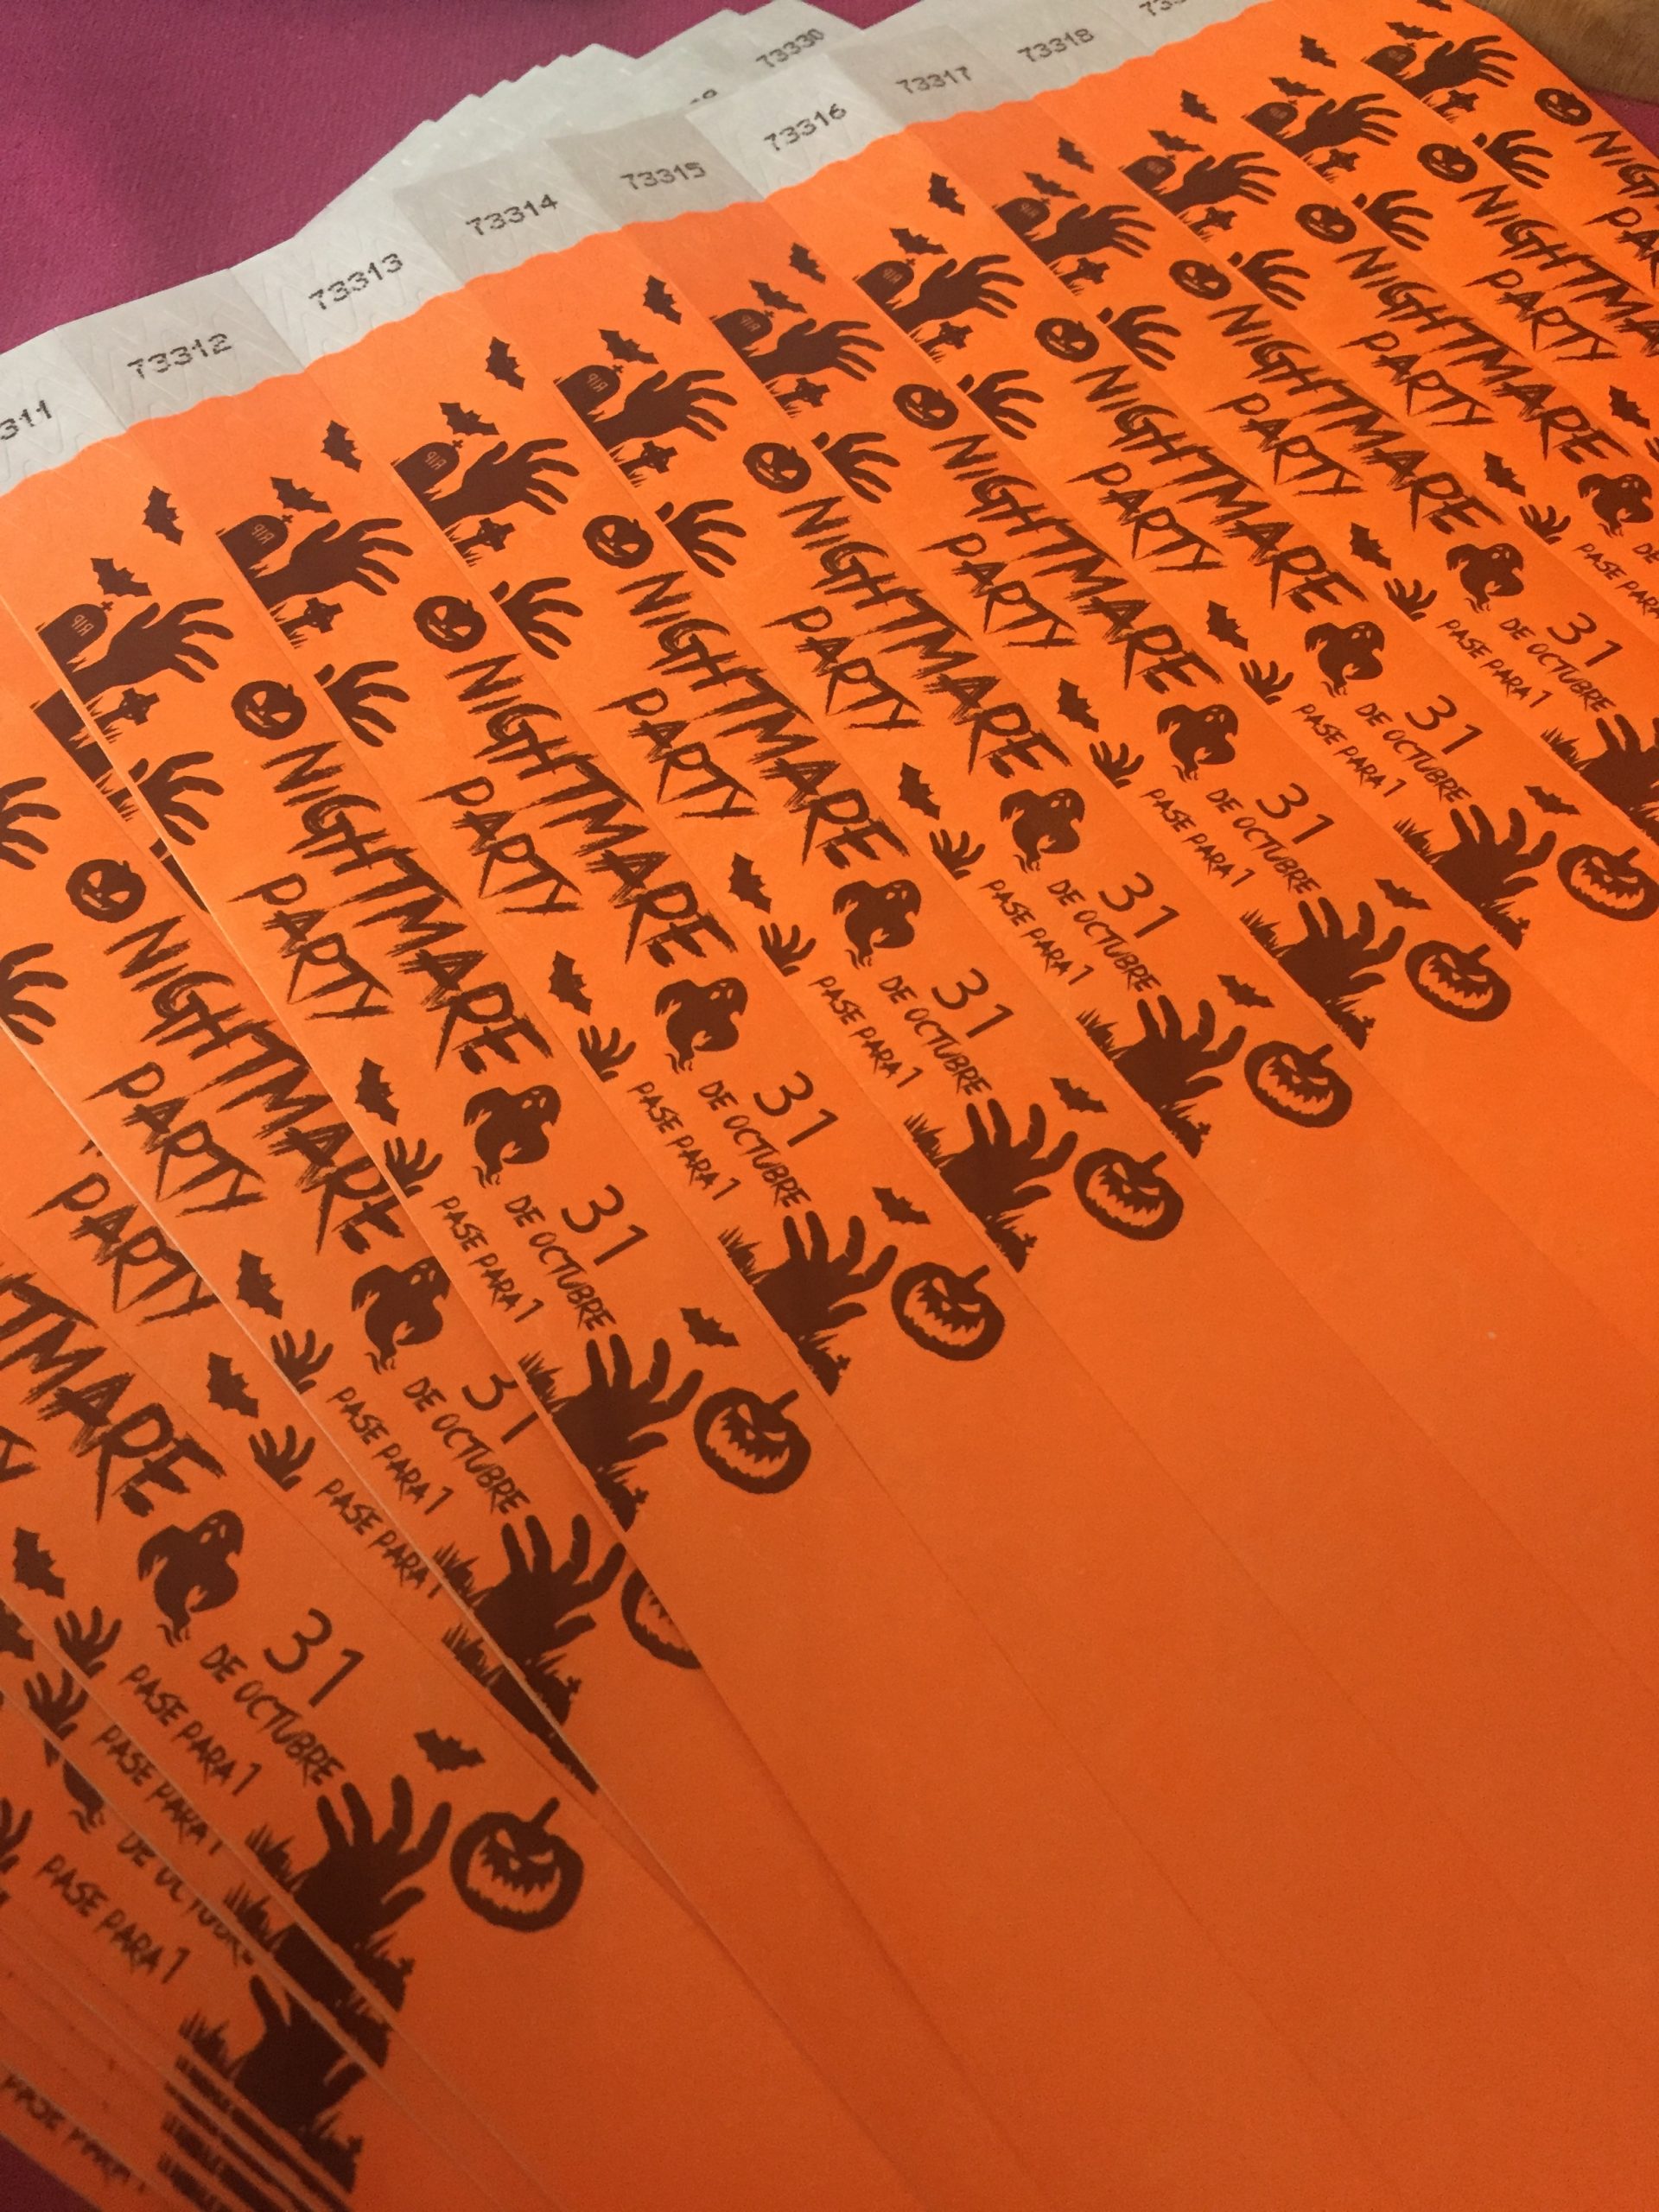 311
73312
73313
73314
73315
73316
73317
73318
73330
RIP
NIGHTMARE
PARTY
31
DE OCTUBRE
PASE PARA 1
RIP
NIGHTMARE
PARTY
31
DE OCTUBRE
PASE PARA 1
RIP
NIGHTMARE
PARTY
31
DE OCTUBRE
PASE PARA 1
RIP
NIGHTMARE
PARTY
31
DE OCTUBRE
PASE PARA 1
RIP
NIGHTMARE
PARTY
31
DE OCTUBRE
PASE PARA 1
RIP
NIGHTMARE
PARTY
31
DE OCTUBRE
PASE PARA 1
RIP
NIGHTMARE
PARTY
31
DE OCTUBRE
PASE PARA 1
NIGHTMARE
PARTY
31
DE OCTUBRE
PASE PARA 1
PARTY
PASE PARA 1
PASE PARA 1
PASE PARA 1